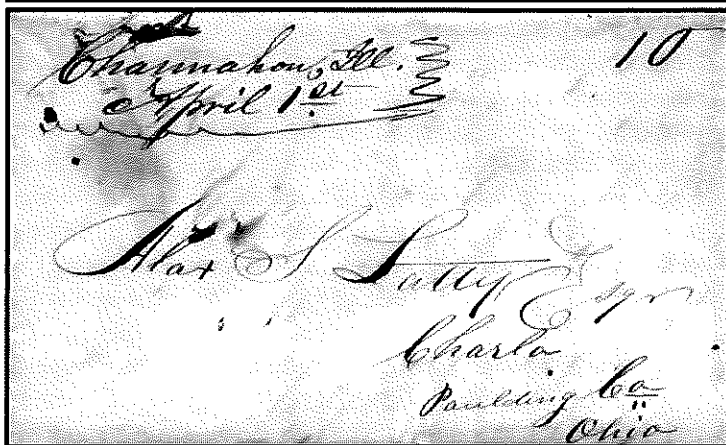 Channahon, Ill. 10
April 1st
Alex S Latty Esqr
Charlo
Paulding Co
Ohio